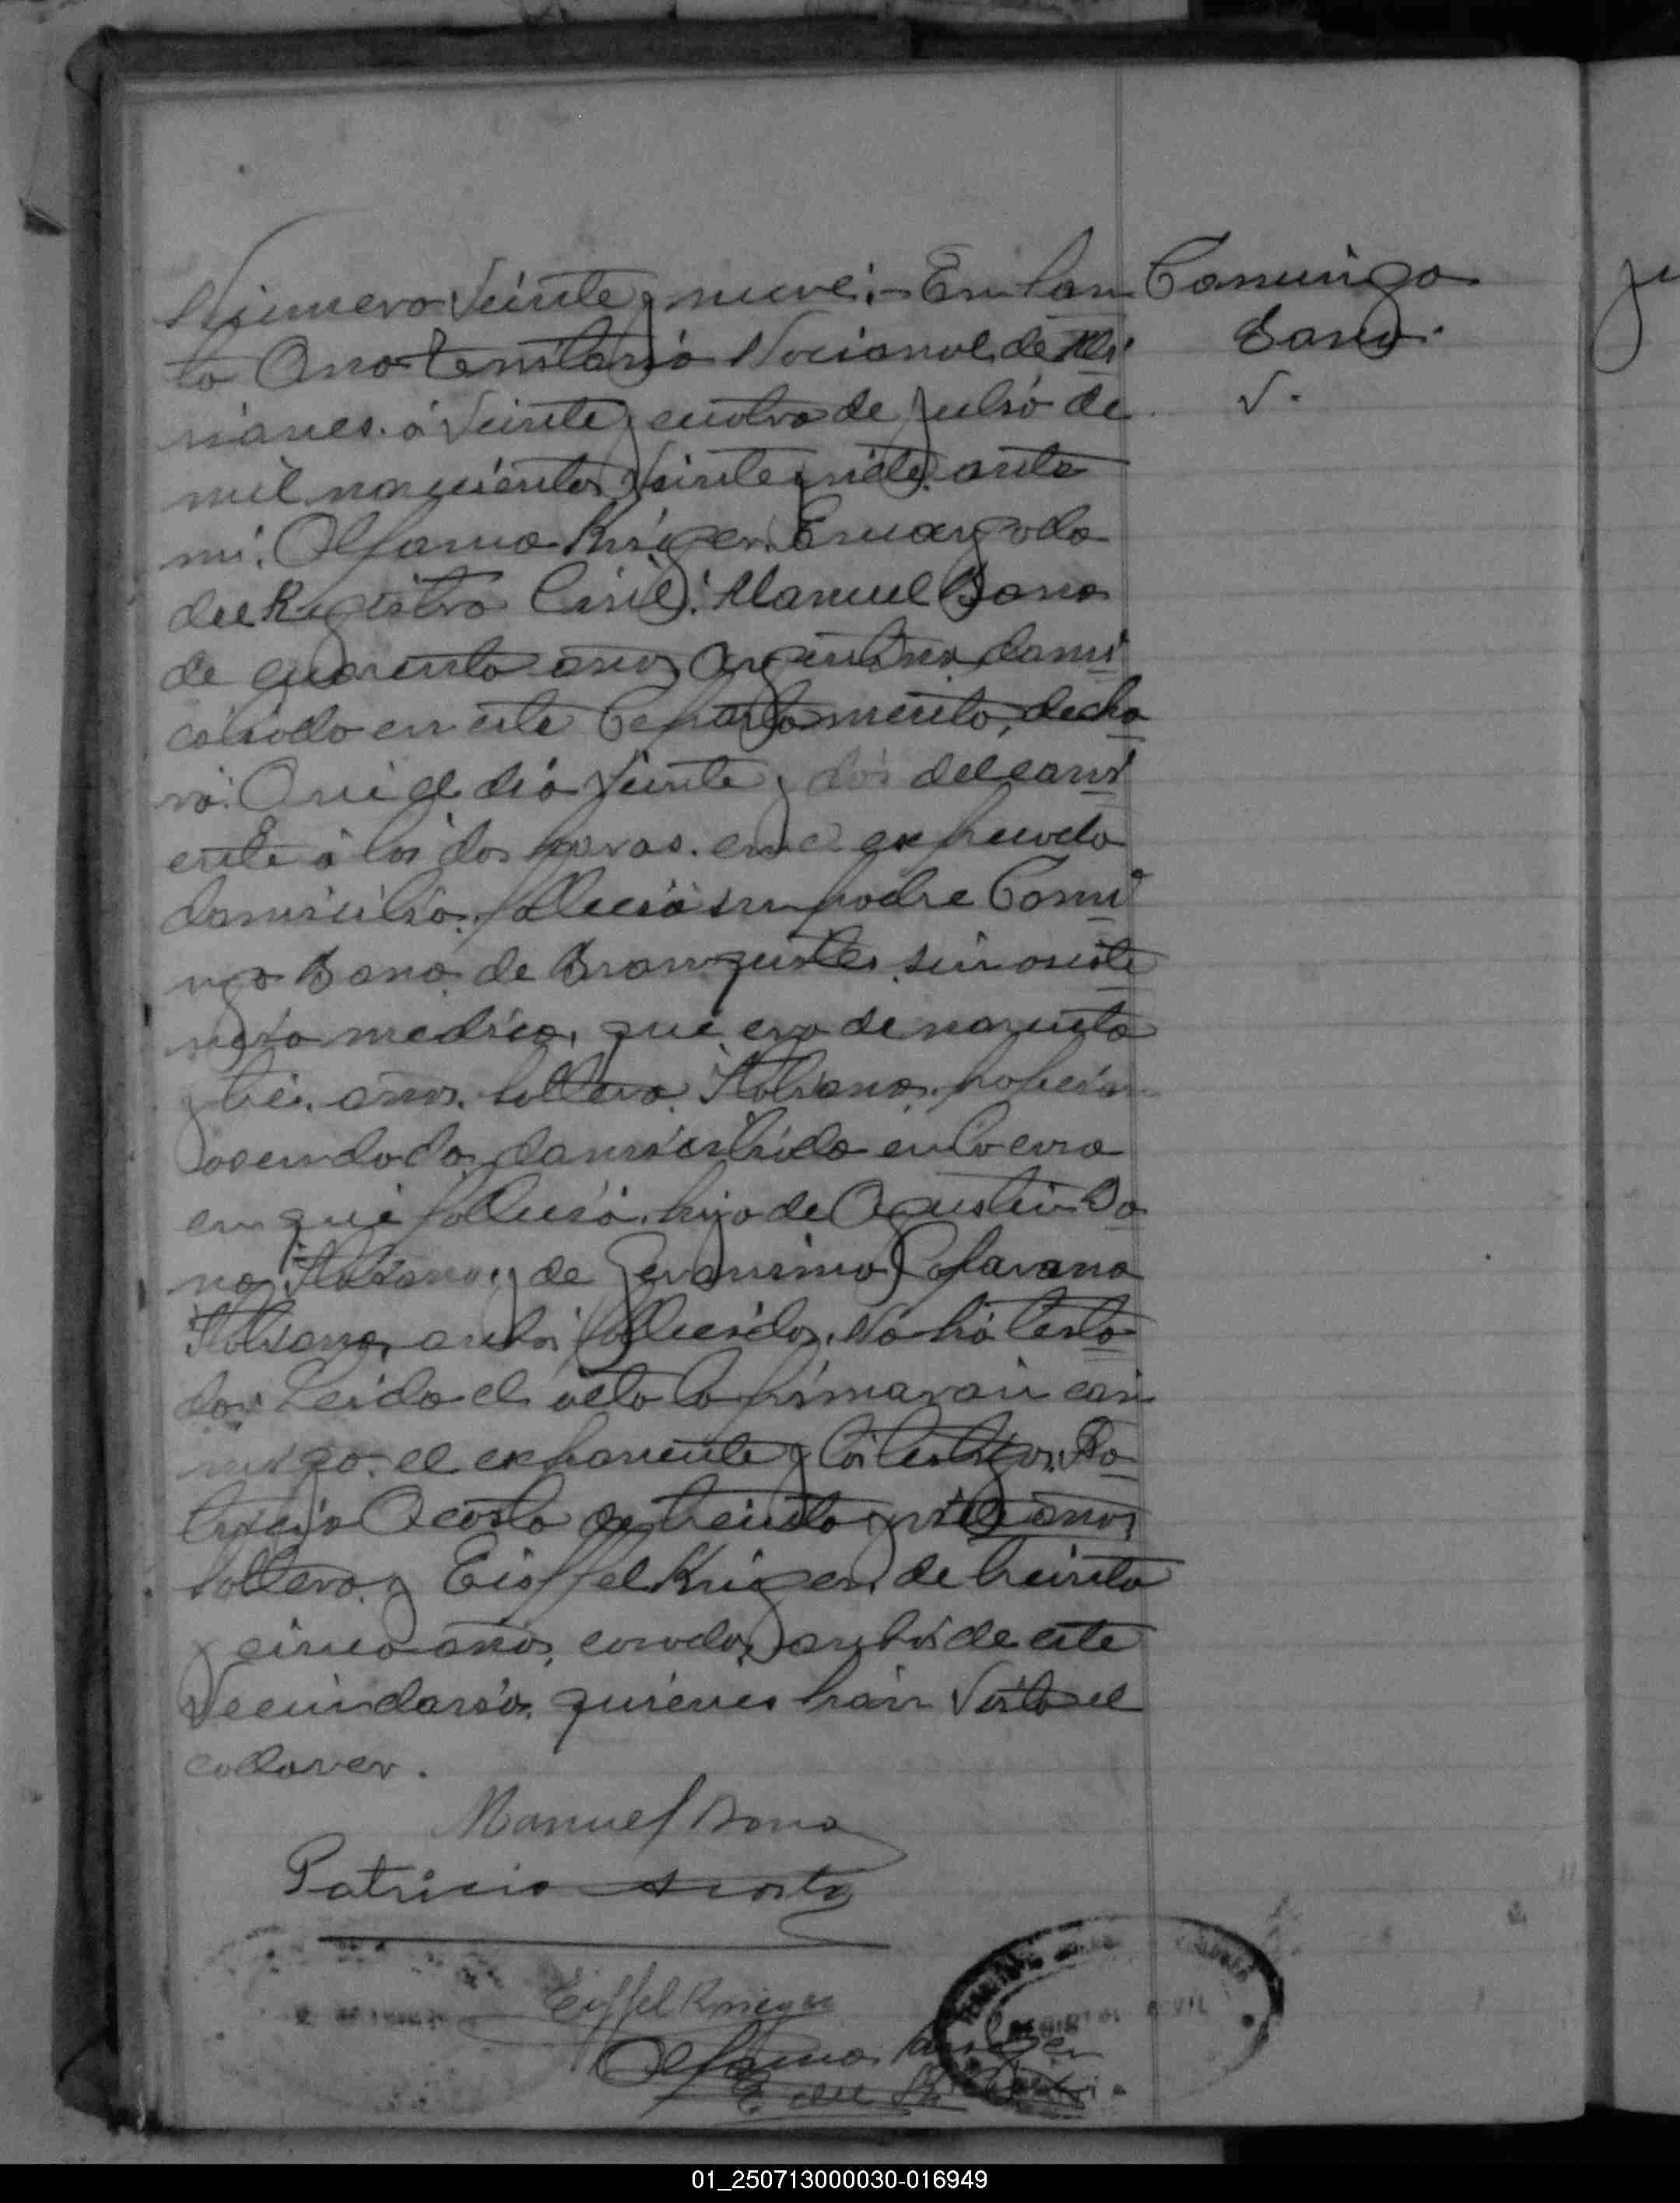 Número Veinte y nueve: En San
ta Ana Territorio Nacional de Mi
siones. á Veinte y cuatro de Julio de
mil novecientos Veinte y siete, ante
mi. Krieger Encargado
del Registro Civil: Manuel Bono
de cuarenta años Argentino, domi
ciliado en este Departamento, decla
ró: Que el dia Veinte y dos del corri
ente á las dos horas. en el expresado
domicilio, falleció su padre Domi
ngo Bono de sin asiste
ncia medica, que era de noventa
y tres años. Soltero. Italiano, profesión
hacendado, domiciliado en la casa
en que falleció, hijo de Agustin Bo
no, Italiano, y de
Italiana, ambos fallecidos. No há testa
do. Leida el acta la firmaron con
migo. el exponente y los testigos, Pa
tricio Acosta de treinta y siete años
Soltero y Eiffel Krieger, de treinta
y cinco años, casado, ambos de este
Vecindario, quienes han Visto el
cadaver.
Domingo
Bono.
Manuel Bono
Patricio Acosta
Eiffel Krieger
Krieger
E. del R.
REGISTRO CIVIL
01_250713000030-016949